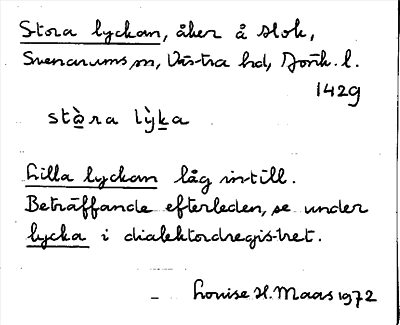 Stora lyckan, åker å Stok,
Svenarums sn, Västra hd, Jönk. l.
1429
stàra lỳka
Lilla lyckan låg intill.
Beträffande efterleden, se under
lycka i dialektordregistret.
– Louise H. Maas 1972